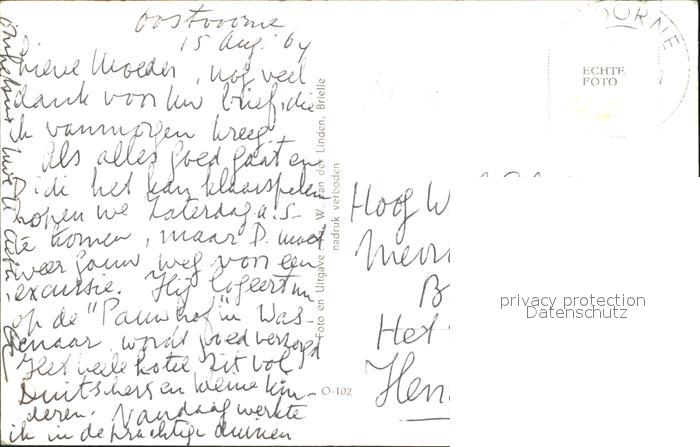 Oostvoorne
15 Aug. 64
Lieve Moeder, nog veel
dank voor Uw brief, die
ik vanmorgen kreeg.
Als alles goed gaat en
Didi het kan klaarspelen
hopen we Zaterdag a.s.
te komen, maar D. moet
weer gauw weg voor een
excursie. Hij logeert nu
op de "Pauwhof" in Was-
senaar, wordt goed verzorgd
Het hele hotel zit vol
Duitschers en kleine kin-
deren. Vandaag werkte
ik in de prachtige duinen
Foto en Uitgave W. van der Linden, Brielle
nadruk verboden
O-102
OORNE
ECHTE
FOTO
Hoog W
Mevr
B
Het
Hen
privacy protection
Datenschutz